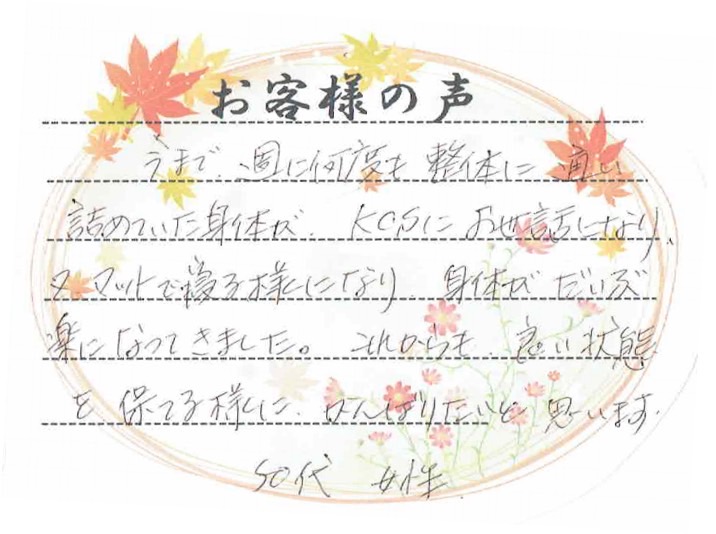 お客様の声
今まで、週に何度も整体に通い
詰めていた身体が、KCSにお世話になり、
マットで寝る様になり、身体がだいぶ
楽になってきました。これからも、良い状態
を保てる様に、がんばりたいと思います。
50代 女性